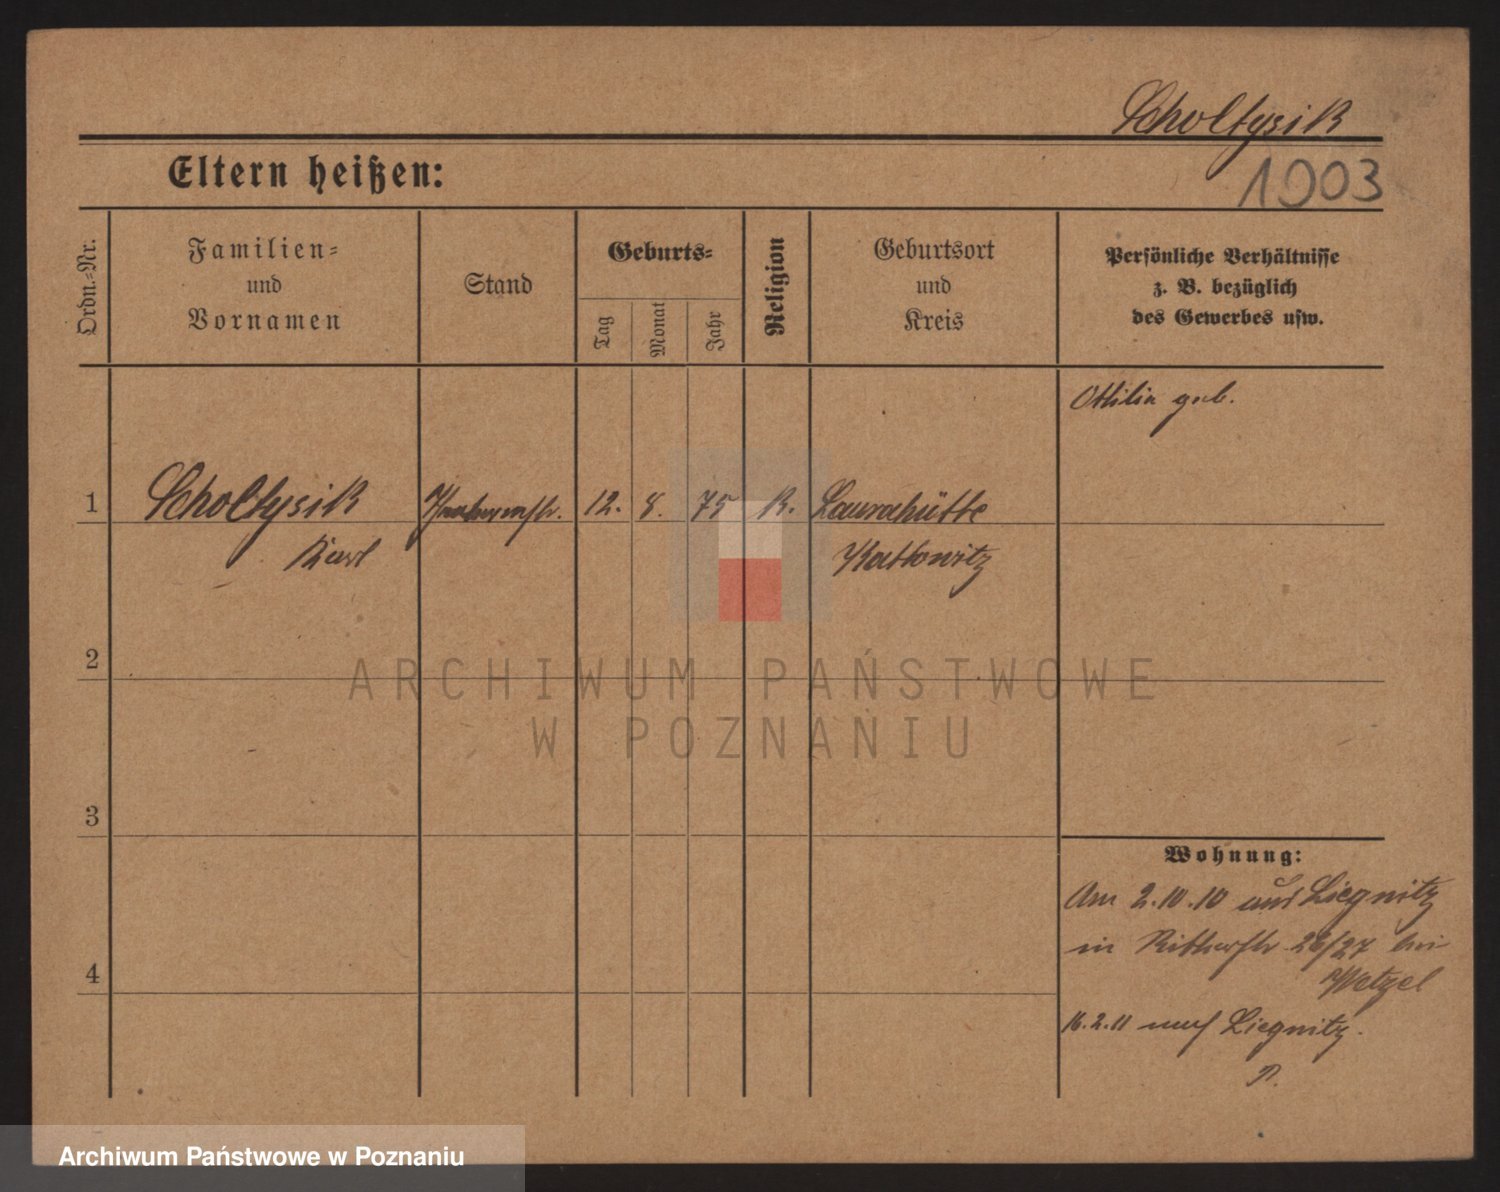 Scholtysik
Eltern heißen:
1903
Ordn.-Nr.
Familien-
und
Vornamen
Stand
Geburts-
Tag
Monat
Jahr
Religion
Geburtsort
und
Kreis
Persönliche Verhältnisse
z. B. bezüglich
des Gewerbes usw.
Ottilia geb.
1 Scholtysik 12. 8. 75 K. Laurahütte
Karl Kattowitz
2
ARCHIWUM PAŃSTWOWE
W POZNANIU
3
Wohnung:
Am 2.10.10 aus Liegnitz
in Ritterstr 26/27 bei
4
Wetzel
16.2.11 nach Liegnitz.
Archiwum Państwowe w Poznaniu